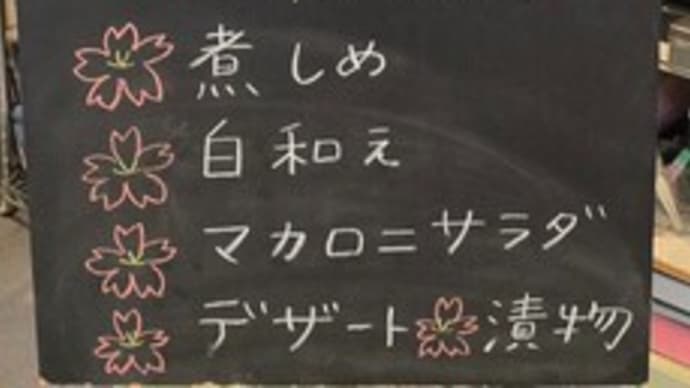 煮しめ
白和え
マカロニサラダ
デザート 漬物